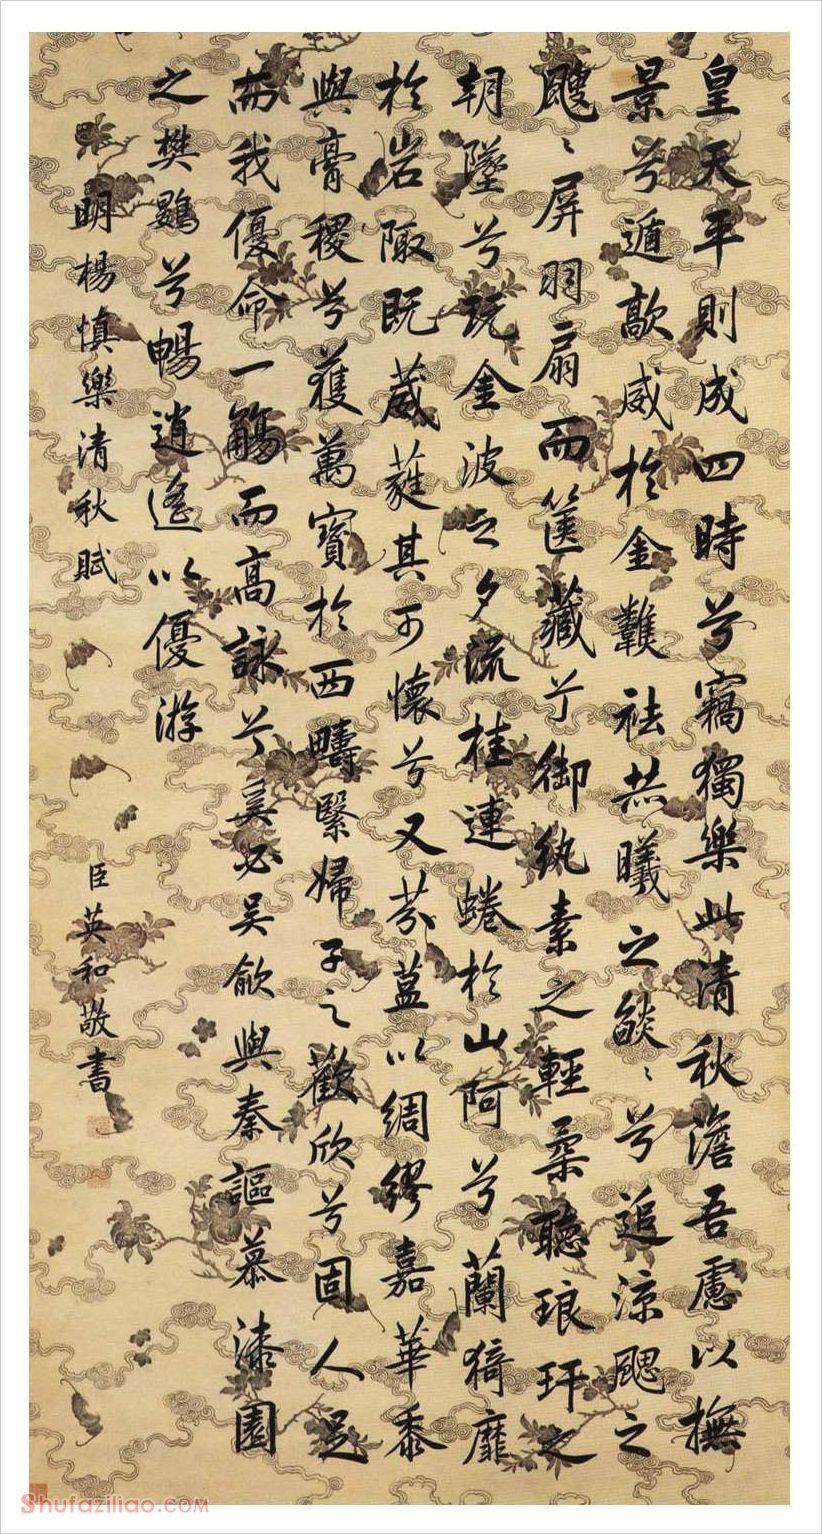 皇天平則成四時兮竊獨樂此清秋澹吾慮以撫
景兮遁歊威於金難祛炎曦之燄〻兮追涼颸之
颼〻屏羽扇而篋藏兮御紈素之輕柔聽琅玕之
朝墜兮玩金波之夕流桂連蜷於山阿兮蘭猗靡
於岩陬既葳蕤其可懷兮又芬葐以綢繆嘉華黍
與膏稷兮獲萬寶於西疇緊婦子之歡欣兮固人足
而我優命一觴而高詠兮奚必吳歈與秦謳慕漆園
之樊鷃兮暢逍遙以優游
明楊慎樂清秋賦
臣英和敬書
Shufaziliao.COM